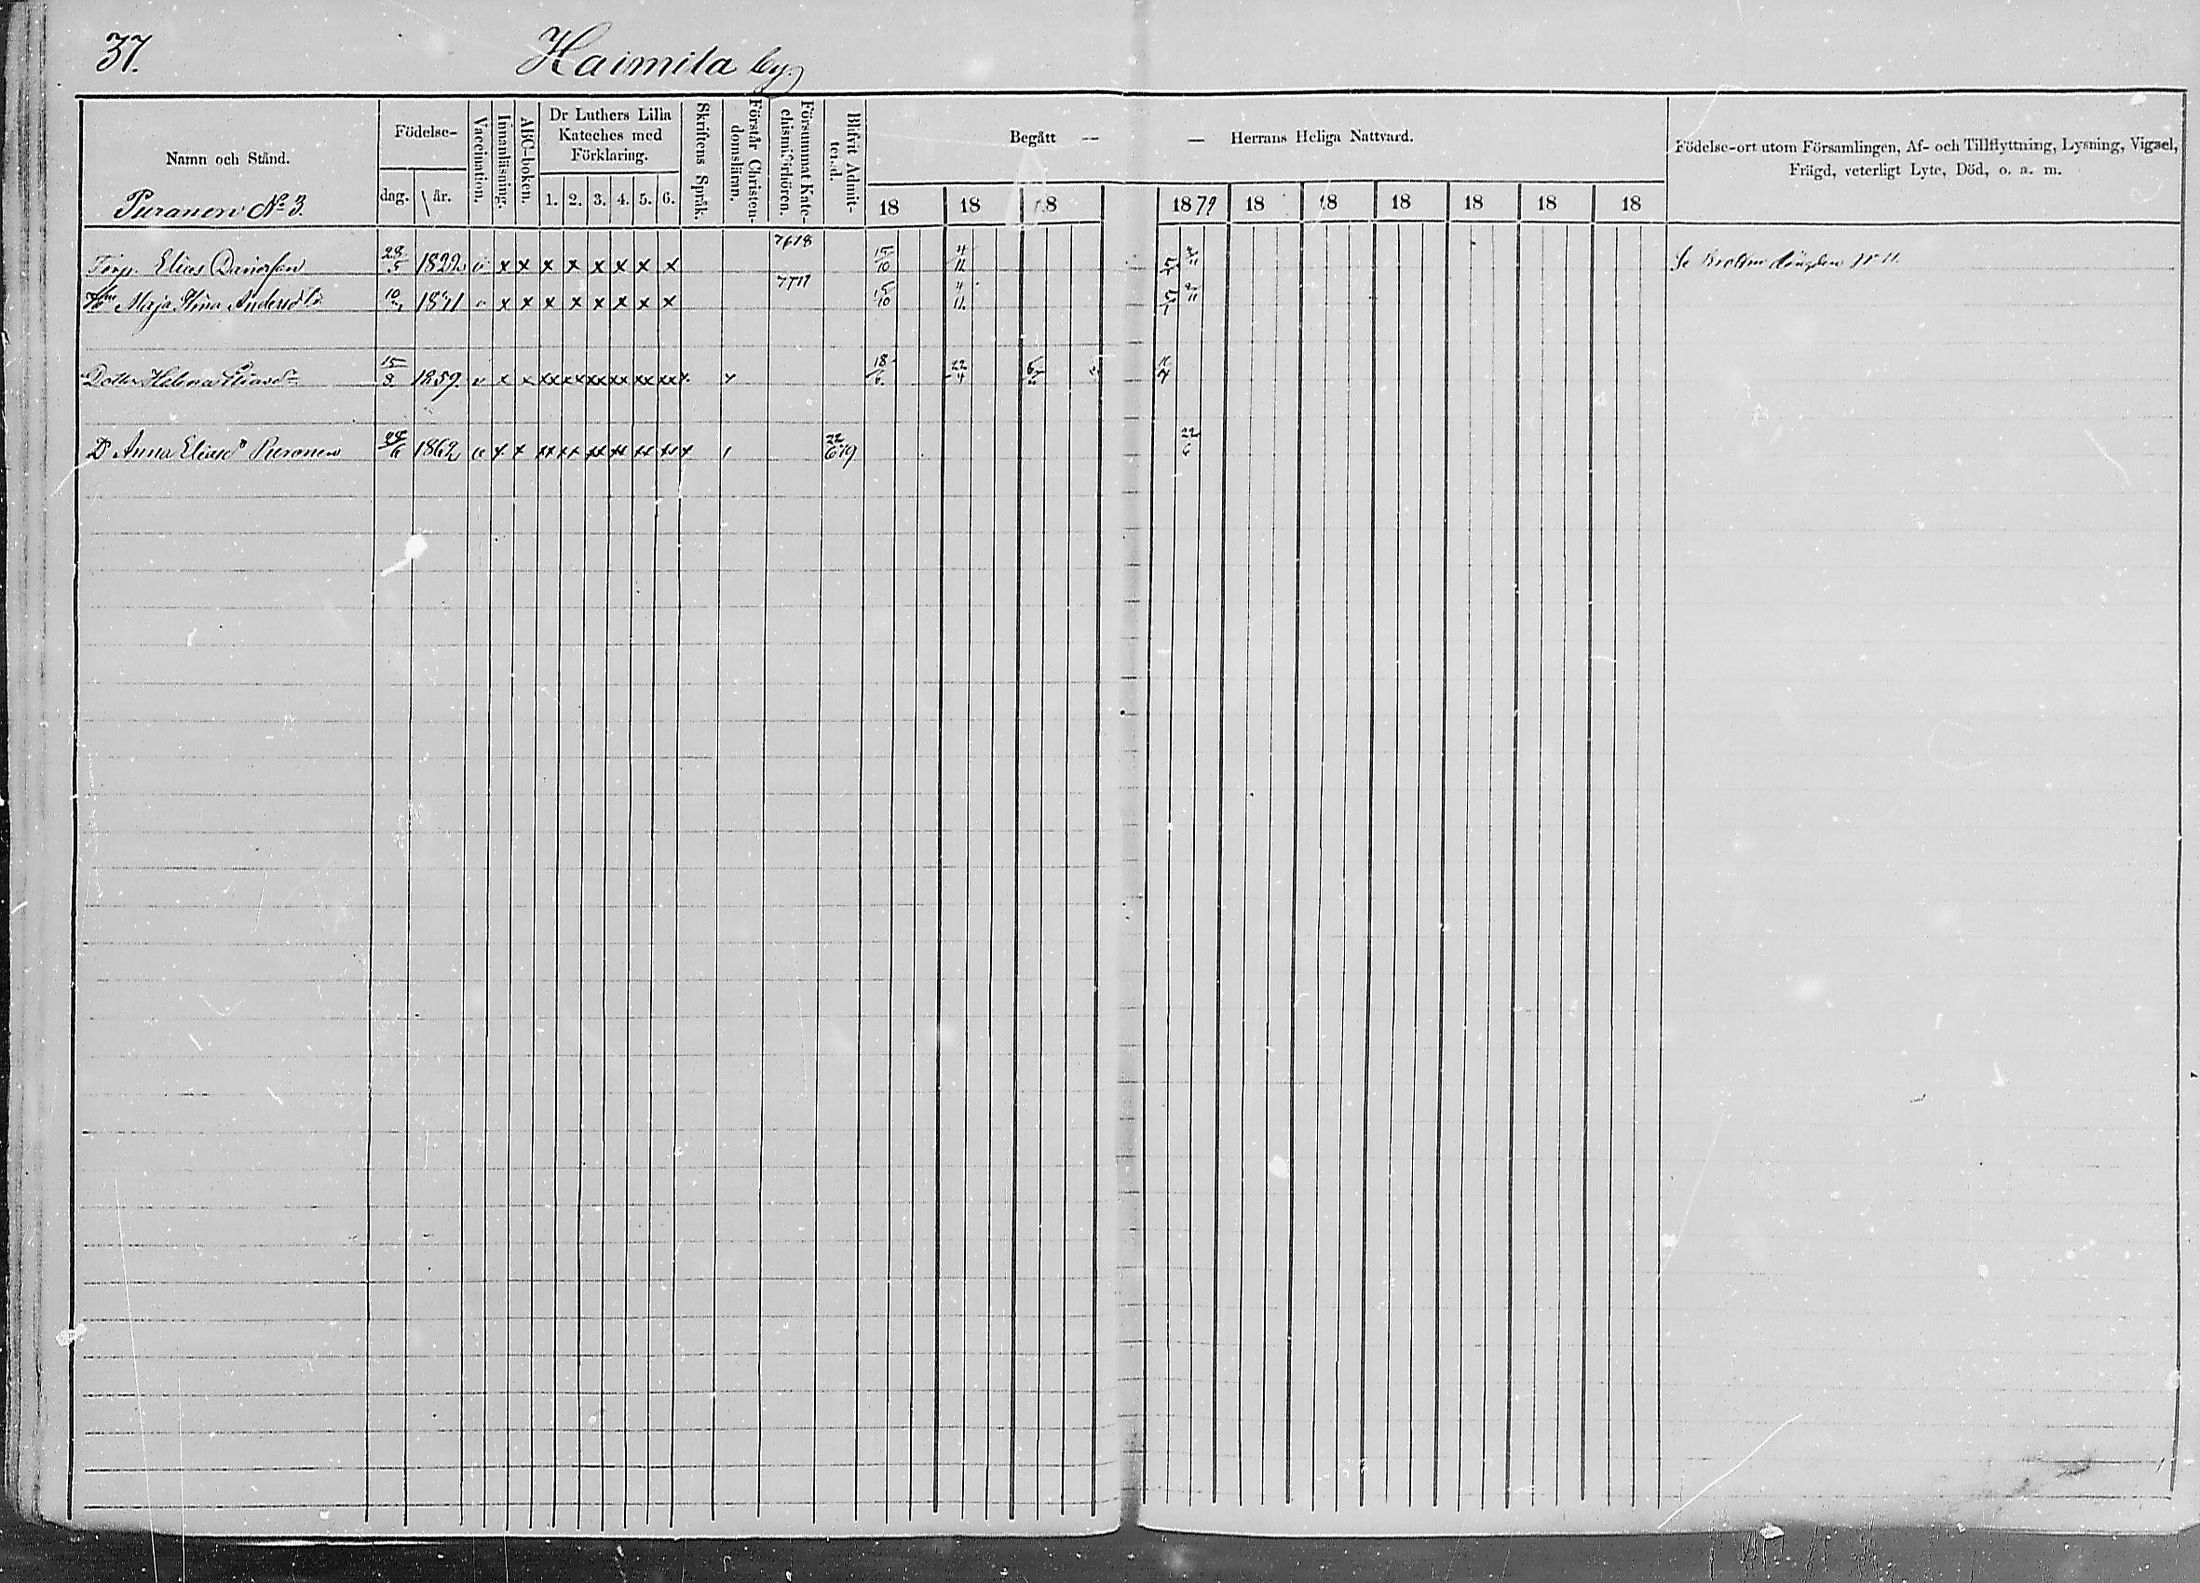 37. Haimila by
Namn och Stånd.
Födelse-
dag. år.
Vaccination.
Innanläsning.
ABC-boken.
Dr Luthers Lilla
Kateches med
Förklaring.
1. 2. 3. 4. 5. 6.
Skriftens Språk.
Förstår Christen-
domsläran.
Försummat Kate-
chismiförhören.
Blifvit Admit-
terad.
Begått — — Herrans Heliga Nattvard.
18 18 18 1879 18 18 18 18 18 18
Födelse-ort utom Församlingen, Af- och Tillflyttning, Lysning, Vigsel,
Frägd, veterligt Lyte, Död, o. a. m.
Puranen No 3.
Torp. Elias 28/5 1822 v x x x x x x x x 15/10 4/11
Maja Stina Andersdr 10 1821 v x x x x x x x x 15/10 4/11
Dotter Helena Eliasdr 15/8 1859 v x x xx xx xx xx xx xx x 18/6 22/4
Dr Anna Eliasdr Puranen 28/6 1862 v x x xx xx xx xx xx xx x 22/6 79 22/6